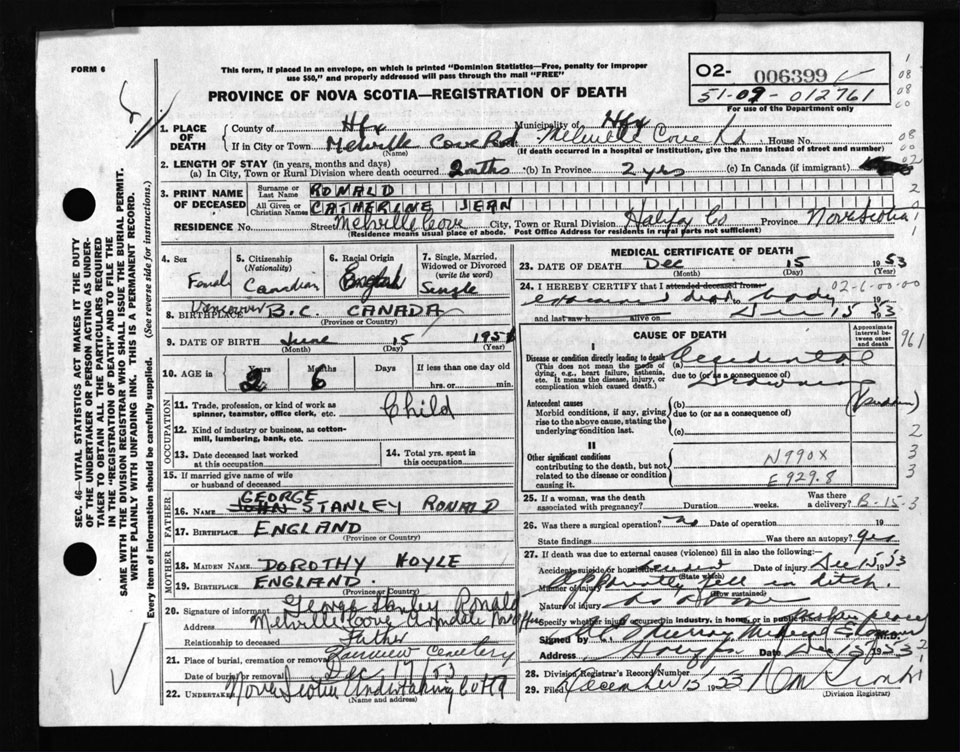 FORM 6
This form, if placed in an envelope, on which is printed "Dominion Statistics—Free, penalty for improper
use $50," and properly addressed will pass through the mail "FREE"
PROVINCE OF NOVA SCOTIA—REGISTRATION OF DEATH
O2- 006399
51-09-012761
For use of the Department only
1. PLACE OF DEATH
County of Hfx Municipality of Hfx
If in City or Town Melville Cove Rd Melville Cove Rd House No.
(Name) (If death occurred in a hospital or institution, give the name instead of street and number)
2. LENGTH OF STAY (in years, months and days)
(a) In City, Town or Rural Division where death occurred 2 mths (b) In Province 2 yrs (c) In Canada (if immigrant)
3. PRINT NAME OF DECEASED
Surname or Last Name RONALD
All Given or Christian Names CATHERINE JEAN
RESIDENCE No. Street Melville Cove City, Town or Rural Division Halifax Co Province Nova Scotia
(Residence means usual place of abode. Post Office Address for residents in rural parts not sufficient)
SEC. 46—VITAL STATISTICS ACT MAKES IT THE DUTY
OF THE UNDERTAKER OR PERSON ACTING AS UNDER-
TAKER TO OBTAIN ALL THE PARTICULARS REQUIRED
IN THE "REGISTRATION OF DEATH" AND TO FILE THE
SAME WITH THE DIVISION REGISTRAR WHO SHALL ISSUE THE BURIAL PERMIT.
WRITE PLAINLY WITH UNFADING INK. THIS IS A PERMANENT RECORD.
Every item of information should be carefully supplied. (See reverse side for instructions.)
4. Sex
5. Citizenship (Nationality) Canadian
6. Racial Origin English
7. Single, Married, Widowed or Divorced (write the word) Single
8. BIRTHPLACE Vancouver B.C. CANADA
(Province or Country)
9. DATE OF BIRTH June 15 195
(Month) (Day) (Year)
10. AGE in Years 2 Months 6 Days If less than one day old
hrs. or min.
OCCUPATION
11. Trade, profession, or kind of work as
spinner, teamster, office clerk, etc. Child
12. Kind of industry or business, as cotton-
mill, lumbering, bank, etc.
13. Date deceased last worked
at this occupation
14. Total yrs. spent in
this occupation
15. If married give name of wife
or husband of deceased
FATHER
GEORGE
16. Name JOHN STANLEY RONALD
17. Birthplace ENGLAND
(Province or Country)
MOTHER
18. MAIDEN NAME DOROTHY HOYLE
19. BIRTHPLACE ENGLAND.
(Province or Country)
20. Signature of informant George Stanley Ronald
Address Melville Cove Armdale Post Office
Relationship to deceased Father
21. Place of burial, cremation or removal Fairview Cemetery
Date of burial or removal Dec 17/53
22. UNDERTAKER Nova Scotia Undertaking Co
(Name and address)
MEDICAL CERTIFICATE OF DEATH
23. DATE OF DEATH Dec 15 1953
(Month) (Day) (Year)
24. I HEREBY CERTIFY that I attended deceased from 02-6-00-00
examined dead body 19
and last saw h alive on Dec 15 1953
CAUSE OF DEATH
Approximate interval between onset and death
I
Disease or condition directly leading to death (a) Accidental
(This does not mean the mode of
dying, e.g., heart failure, asthenia,
etc. It means the disease, injury, or
complication which caused death.)
due to (or as a consequence of)
drowning
Antecedent causes
Morbid conditions, if any, giving
rise to the above cause, stating the
underlying condition last.
(b)
due to (or as a consequence of)
(c)
(sudden)
II
Other significant conditions
contributing to the death, but not
related to the disease or condition
causing it.
N990X
E929.8
25. If a woman, was the death
associated with pregnancy? Duration weeks. Was there a delivery? B-15-3
26. Was there a surgical operation? no Date of operation 19
State findings Was there an autopsy? yes
27. If death was due to external causes (violence) fill in also the following:—
Accident, suicide or homicide Date of injury Dec 15 53
(State which)
Manner of injury Apparently fell in ditch.
(How sustained)
Nature of injury
Specify whether injury occurred in industry, in home, or in public place
Signed by M.D.
Address Halifax Date Dec 53
28. Division Registrar's Record Number
29. Filed December 15 1953
(Division Registrar)